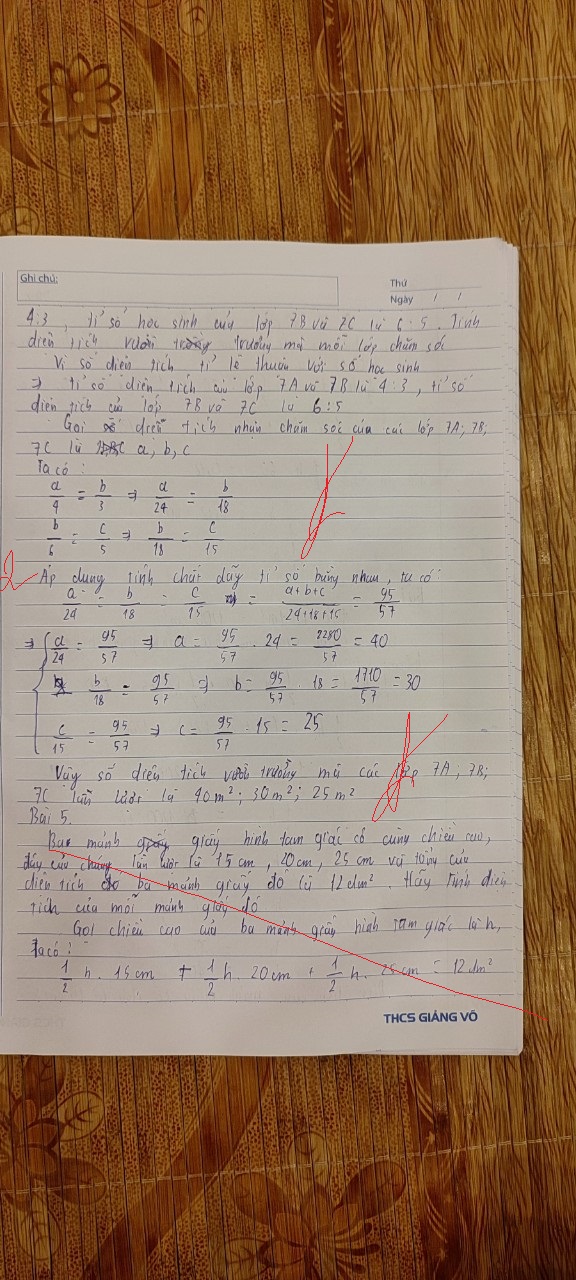 Ghi chú:
Thứ
Ngày / /
4:3, tỉ số học sinh của lớp 7B và 7C là 6:5. Tính
diện tích vườn trường mà mỗi lớp chăm sóc
Vì số diện tích tỉ lệ thuận với số học sinh
⇒ tỉ số diện tích của lớp 7A và 7B là 4:3, tỉ số
diện tích của lớp 7B và 7C là 6:5
Gọi số diện tích nhận chăm sóc của các lớp 7A; 7B;
7C là a, b, c
Ta có:
a/4 = b/3 ⇒ a/24 = b/18
b/6 = c/5 ⇒ b/18 = c/15
2 Áp dụng tính chất dãy tỉ số bằng nhau, ta có
a/24 = b/18 = c/15 = a+b+c/24+18+15 = 95/57
⇒ { a/24 = 95/57 ⇒ a = 95/57 . 24 = 2280/57 = 40
b/18 = 95/57 ⇒ b = 95/57 . 18 = 1710/57 = 30
c/15 = 95/57 ⇒ c = 95/57 . 15 = 25
Vậy số diện tích vườn trường mà các lớp 7A; 7B;
7C lần lượt là 40 m²; 30 m²; 25 m²
Bài 5.
Ba mảnh giấy hình tam giác có cùng chiều cao,
đáy của chúng lần lượt là 15cm, 20cm, 25cm và tổng của
diện tích ba mảnh giấy đó là 12dm². Hãy tính diện
tích của mỗi mảnh giấy đó
Gọi chiều cao của ba mảnh giấy hình tam giác là h,
Ta có:
1/2 h . 15cm + 1/2 h . 20cm + 1/2 h . 25cm = 12dm²
THCS GIẢNG VÕ